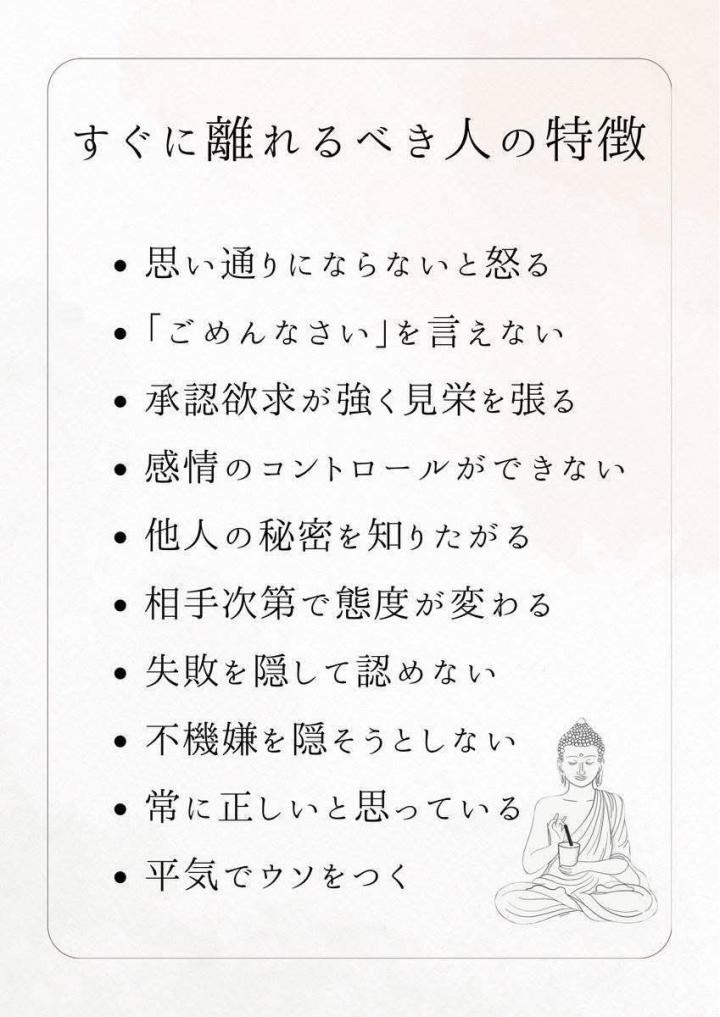 すぐに離れるべき人の特徴
• 思い通りにならないと怒る
• 「ごめんなさい」を言えない
• 承認欲求が強く見栄を張る
• 感情のコントロールができない
• 他人の秘密を知りたがる
• 相手次第で態度が変わる
• 失敗を隠して認めない
• 不機嫌を隠そうとしない
• 常に正しいと思っている
• 平気でウソをつく